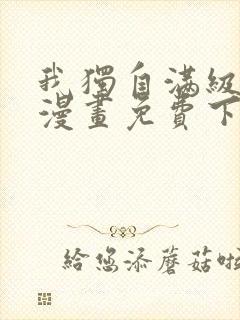 我獨自滿級
漫畫免費下
給您添蘑菇啦